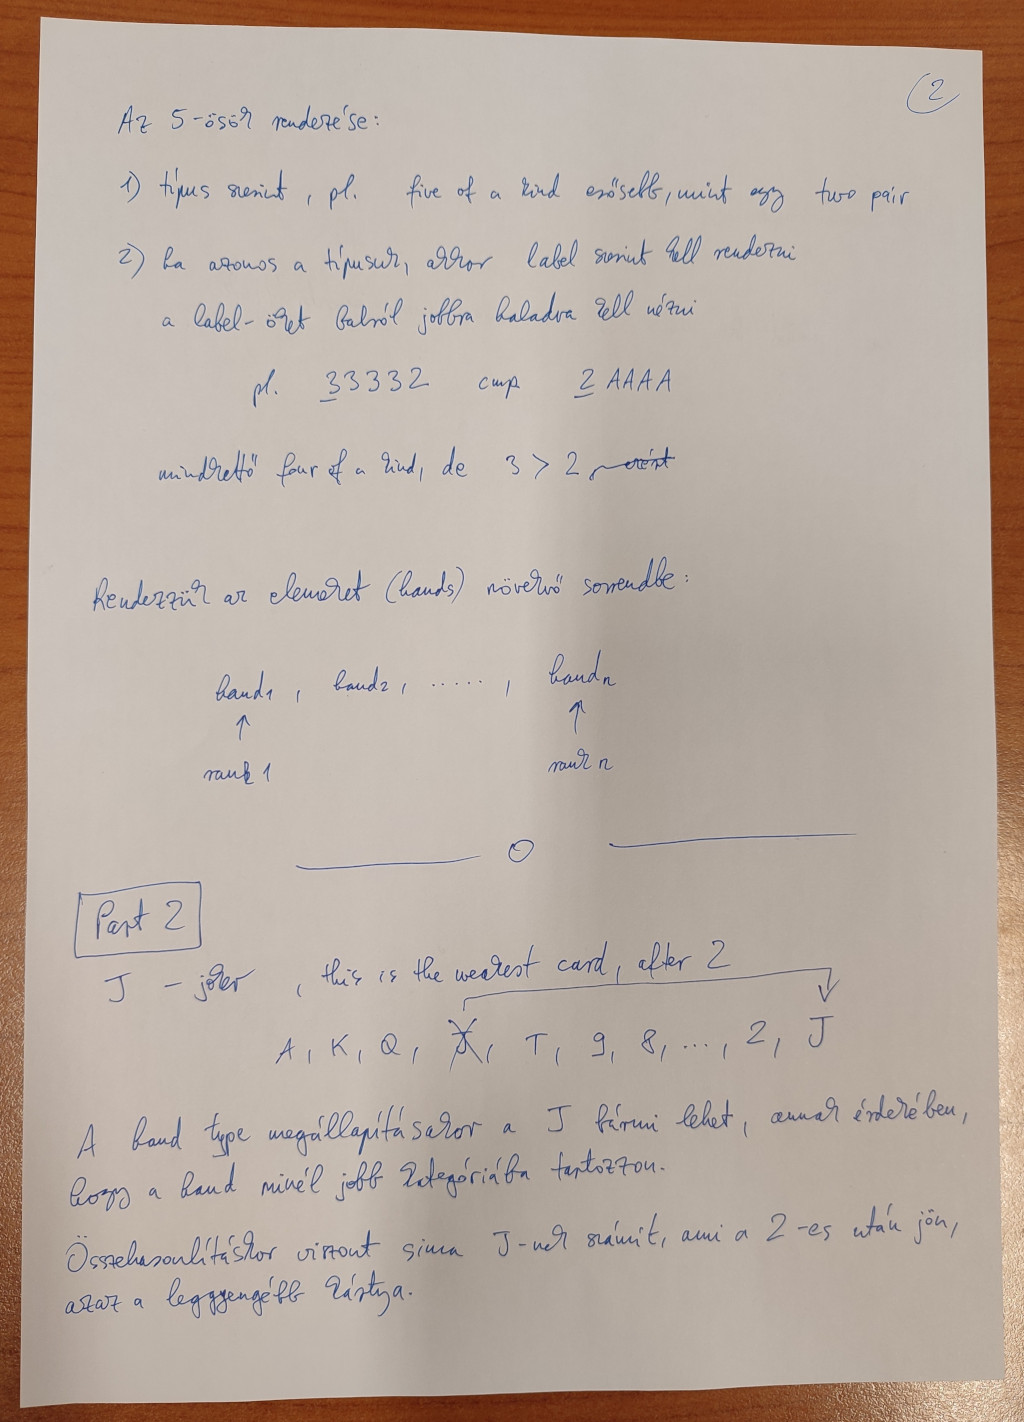 2
Az 5-ösök rendezése:
1) típus szerint, pl. five of a kind erősebb, mint egy two pair
2) ha azonos a típusuk, akkor label szerint kell rendezni
a label-öket balról jobbra haladva kell nézni
pl. 33332 cmp 2AAAA
mindkettő four of a kind, de 3 > 2
Rendezzük az elemeket (hands) növekvő sorrendbe:
hand1, hand2, ....., handn
↑ ↑
rank 1 rank n
O
Part 2
J - joker, this is the weakest card, after 2
A, K, Q, J, T, 9, 8, ..., 2, J
A hand type megállapításakor a J bármi lehet, annak érdekében,
hogy a hand minél jobb kategóriába tartozzon.
Összehasonlításkor viszont sima J-nek számít, ami a 2-es után jön,
azaz a leggyengébb kártya.